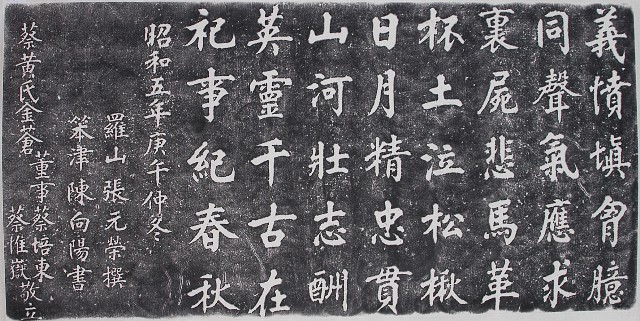 義憤塡胷臆
同聲氣應求
裹屍悲馬革
杯土泣松楸
日月精忠貫
山河壯志酬
英靈千古在
祀事紀春秋
昭和五年庚午仲冬
羅山張元榮撰
笨津陳向陽書
董事蔡培東
蔡黃氏金蒼
蔡惟嶽敬立